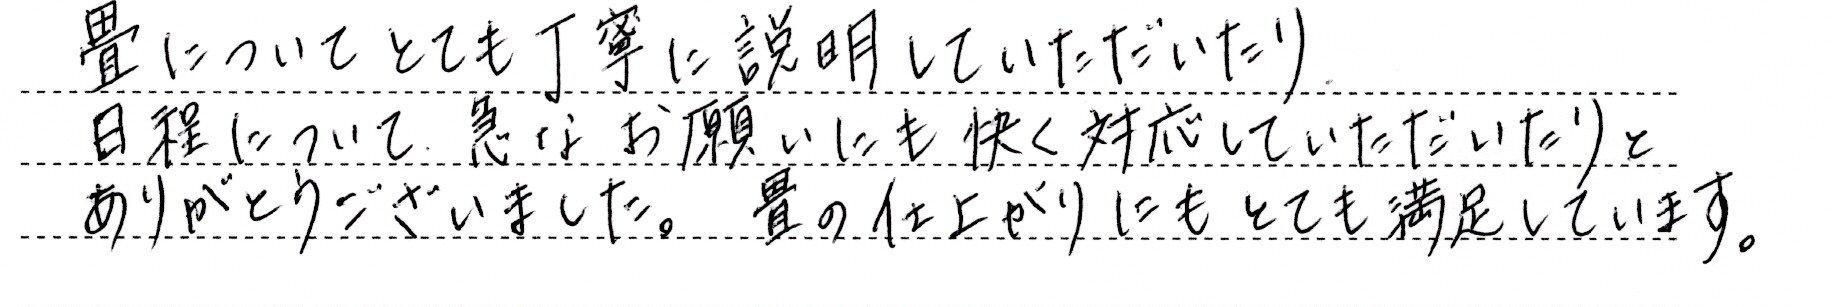 畳についてとても丁寧に説明していただいたり
日程について急なお願いにも快く対応していただいたりと
ありがとうございました。畳の仕上がりにもとても満足しています。